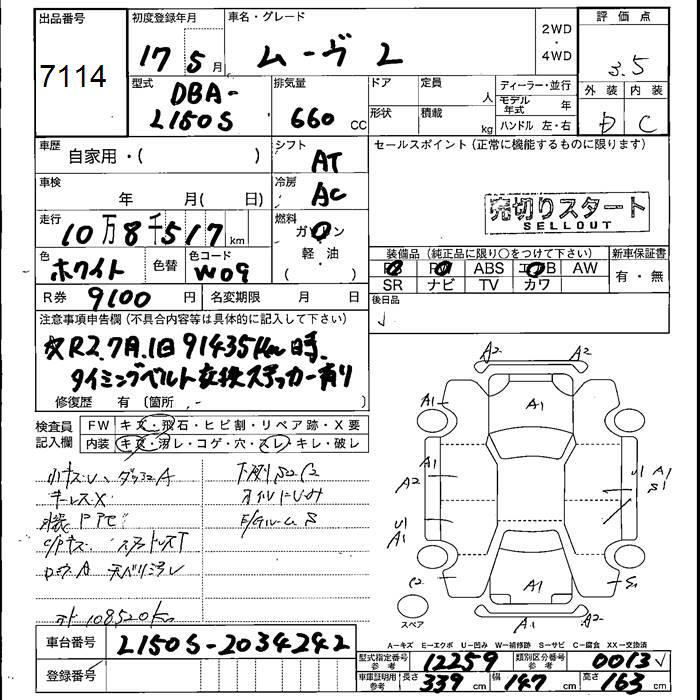 出品番号
7114
初度登録年月
17 5 月
車名・グレード
ムーヴ L
2WD
・
4WD
評価点
3.5
外装 内装
D C
型式
DBA-
L150S
排気量
660 CC
ドア 定員
人
形状 積載
kg
ディーラー・並行
モデル年式 年
ハンドル 左・右
車歴
自家用・( )
シフト
AT
セールスポイント(正常に機能するものに限ります)
車検
年 月( 日)
冷房
AC
売切りスタート
SELLOUT
走行
10万8千517 km
燃料
ガソリン
軽・油
( )
色
ホワイト
色替
色コード
W09
装備品(純正品に限り○をつけて下さい)
PS PW ABS エアB AW
SR ナビ TV カワ
新車保証書
有・無
R券 9100 円
名変期限 月 日
後日品
注意事項申告欄(不具合内容等は具体的に記入して下さい)
R2.7月.1日 91435Km時.
タイミングベルト交換ステッカー有り
修復歴 有(箇所 )
検査員
記入欄
FW キズ・飛石・ヒビ割・リペア跡・X要
内装 キズ・汚レ・コゲ・穴・スレ・キレ・破レ
小キズU、 A
キレスX
下廻りS2C2
オイルにじみ
108520Km
A2 A2
A1
A1
A1
A2
U1 A1
S1
U1
A1
C2
A1
S1
A1 A1
スペア
車台番号
L150S-2034242
登録番号
A-キズ E-エクボ U-凹み W-補修跡 S-サビ C-腐食 XX-交換済
型式指定番号
参考
12259
類別区分番号
参考
0013
車庫証明用
参考
長さ 339 cm 幅 147 cm 高さ 163 cm